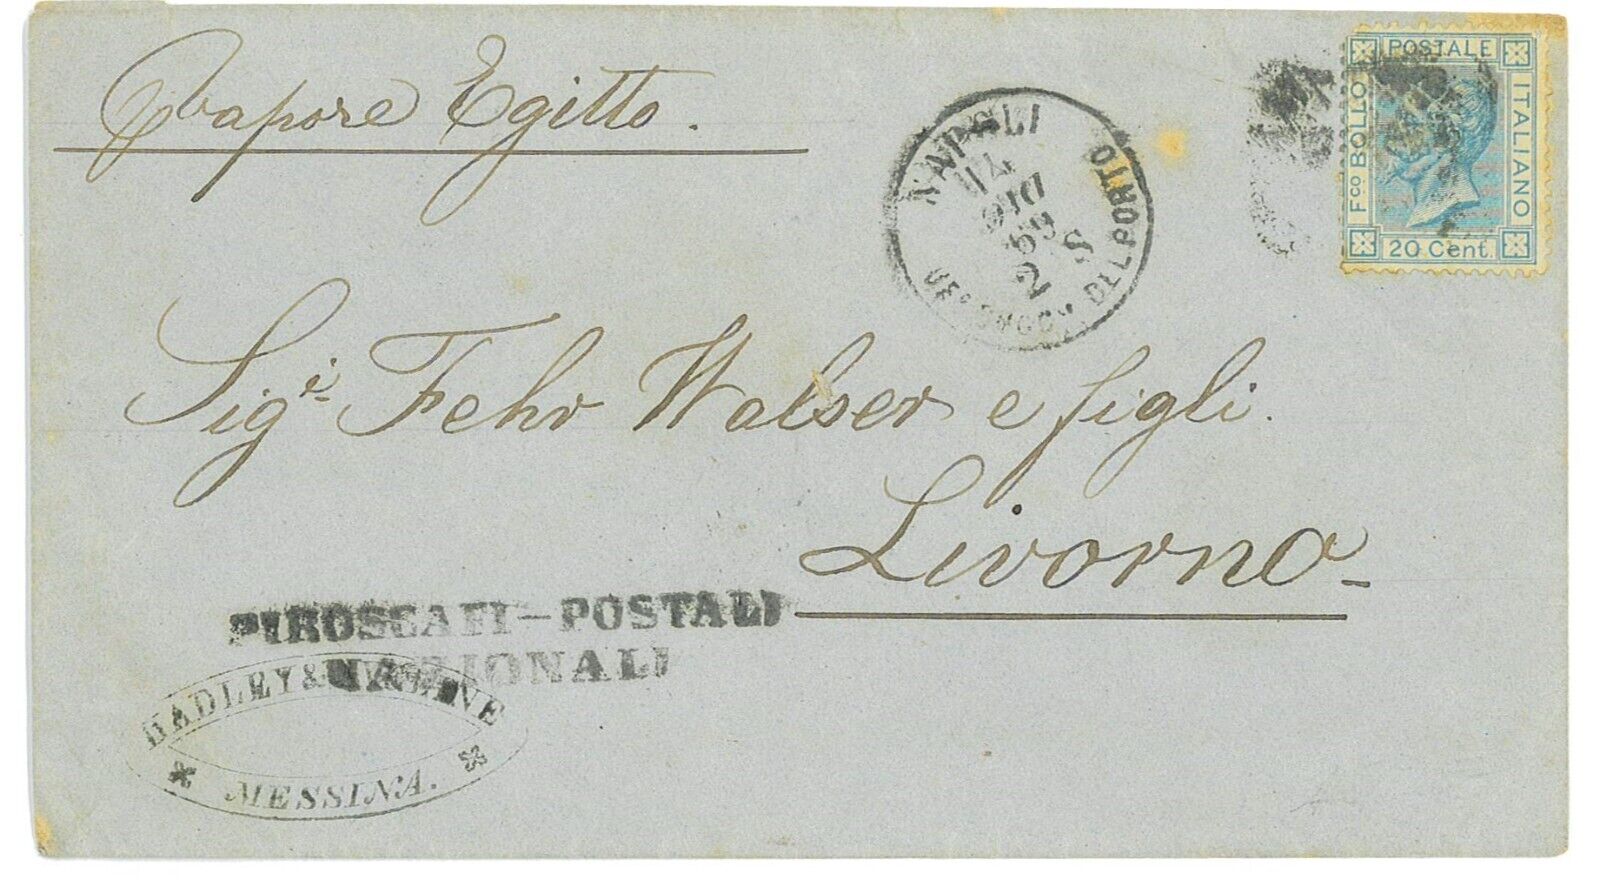 Vapore Egitto.
NAPOLI
14
DIC
69
2 S
DEL PORTO
POSTALE
Fco BOLLO
ITALIANO
20 Cent.
Sigi Fehr Walser e figli.
Livorno
PIROSCAFI-POSTALI
NAZIONALI
HADLEY &
MESSINA.